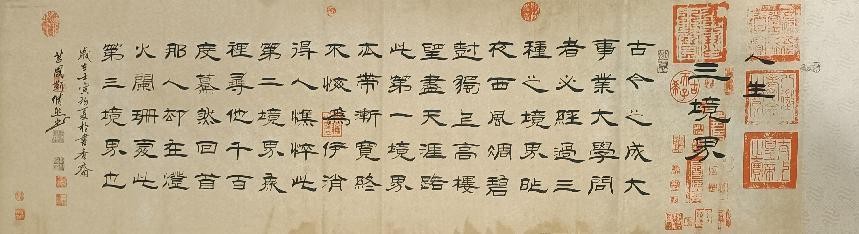 人生
三境界
古今之成大
事業大學問
者必經過三
種之境界昨
夜西風凋碧
樹獨上高樓
望盡天涯路
此第一境界
衣帶漸寬終
不悔為伊消
得人憔悴此
第二境界衆
裡尋他千百
度驀然回首
那人却在燈
火闌珊處此
第三境界也
歲在壬寅初夏於書香齋